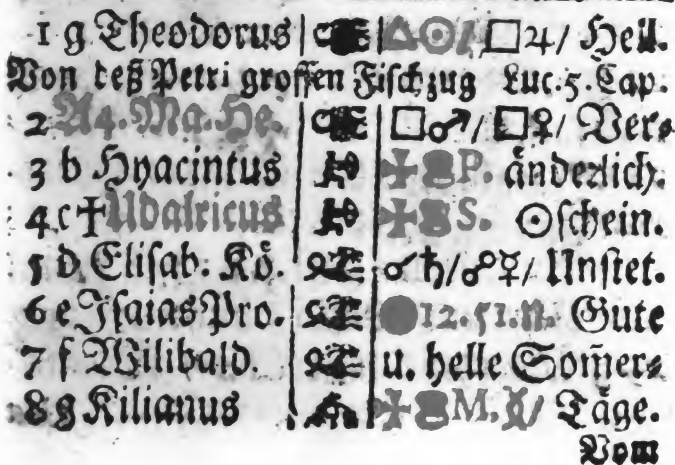 1 g Theodorus △☉/ □♃/ Hell.
Von deß Petri grossen Fischzug Luc. 5. Cap.
2 A 4. Ma. He. □♂/ □♀/ Ver⸗
3 b Hyacintus ✝ P. änderlich.
4 c ✝ Udalricus ✝ S. ☉schein.
5 d Elisab. Kö. ☌♄/☍☿/ Unstet.
6 e Isaias Pro. ● 12. 51. N. Gute
7 f Wilibald. u. helle Som̄er⸗
8 g Kilianus ✝ M. Täge.
Vom